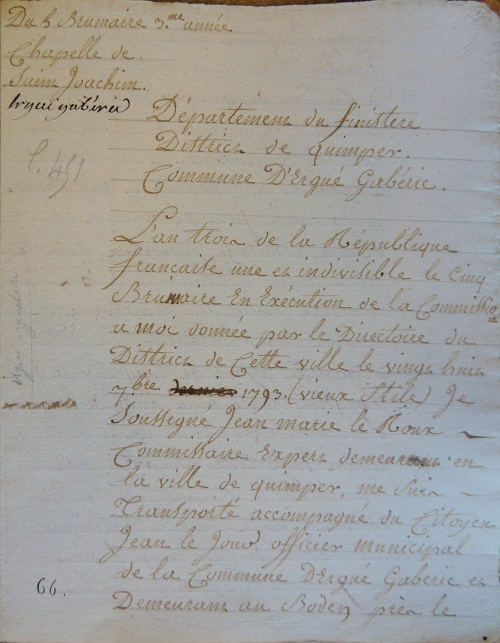 Du 5 Brumaire 3.me année
Chapelle de
Saint Joachim.
Ergué gabéric
Département du finistere
District de quimper.
Commune D'Ergué Gabéric.
L'an trois de la République
française une et indivisible le Cinq
Brumaire En Exécution de la Commission
a moi donnée par le Directoire du
District de Cette ville le vingt huit
7.bre 1793. (vieux Stile) Je
Soussigné Jean marie le Roux
Commissaire Expert demeurant en
la ville de quimper, me suis
Transporté accompagné du Citoyen
Jean le Jour officier municipal
de la Commune D'Ergué Gaberic et
66. Demeurant au Boden près le